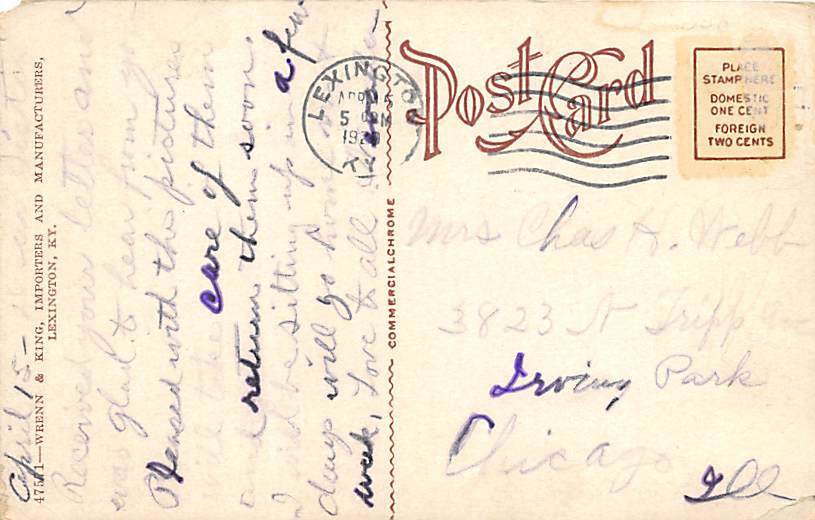 April 15 -
Received your letter and
was glad to hear from you
Pleased with the pictures
will take care of them
and return them soon.
I will be sitting up in a few
days will go home
week, Love to all
47571—WRENN & KING, IMPORTERS AND MANUFACTURERS,
LEXINGTON, KY.
COMMERCIALCHROME
Post Card
LEXINGTON
APR 15
5 PM
KY
PLACE
STAMP HERE
DOMESTIC
ONE CENT
FOREIGN
TWO CENTS
Mrs Chas H. Webb
3823 N Tripp Ave
Irving Park
Chicago
Ill